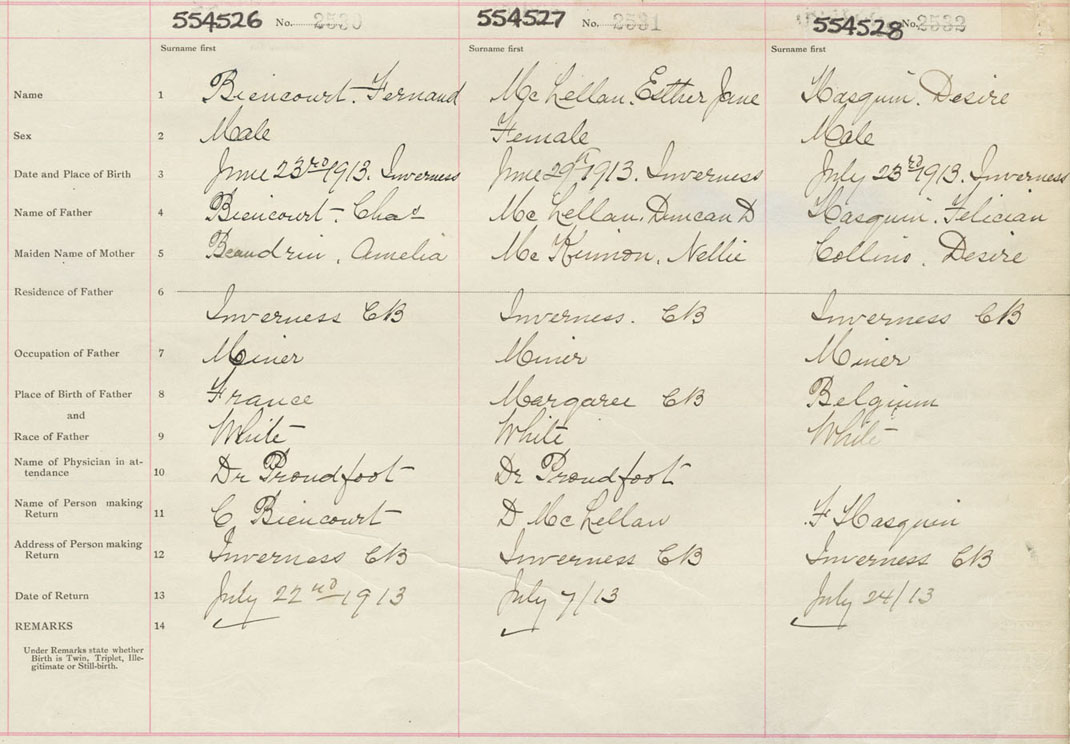 554526 No. 2530 554527 No. 2531 554528 No. 2532
Surname first Surname first Surname first
Name 1 Biencourt. Fernand McLellan. Esther Jane Hasquin. Desire
Sex 2 Male Female Male
Date and Place of Birth 3 June 23rd 1913. Inverness June 29th 1913. Inverness July 23rd 1913. Inverness
Name of Father 4 Biencourt. Chas McLellan. Duncan D Hasquin. Felician
Maiden Name of Mother 5 Beaudrin, Amelia McKinnon, Nellie Collins. Desire
Residence of Father 6
Inverness CB Inverness. CB Inverness CB
Occupation of Father 7 Miner Miner Miner
Place of Birth of Father 8 France Margaree CB Belgium
and
Race of Father 9 White White White
Name of Physician in at-
tendance 10 Dr Proudfoot Dr Proudfoot
Name of Person making
Return 11 C Biencourt D McLellan F Hasquin
Address of Person making
Return 12 Inverness CB Inverness CB Inverness CB
Date of Return 13 July 22nd 1913 July 7/13 July 24/13
REMARKS 14
Under Remarks state whether
Birth is Twin, Triplet, Ille-
gitimate or Still-birth.